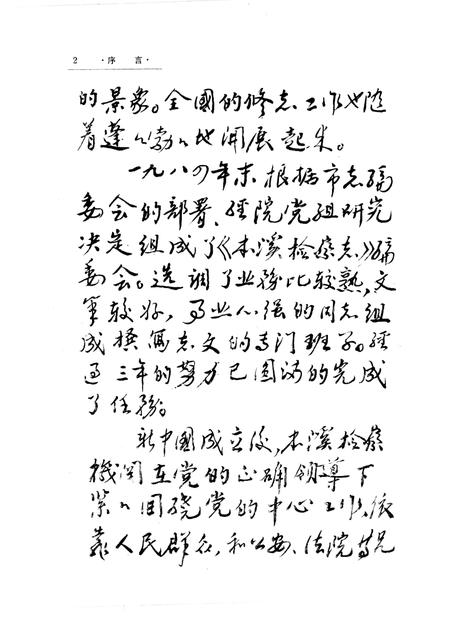 2 ·序 言·
的景象。全國的修志工作也随
着蓬〻勃〻地開展起来。
一九八四年末根据市志编
委会的部署、经院党组研究
决定组成了《本溪检察志》编
委会。选調了业務比较熟，文
笔较好，事业心强的同志组
成撰写志文的专门班子。经
过三年的努力已圆满的完成
了任務。
新中國成立後，本溪检察
機関在党的正确领導下
紧〻围绕党的中心工作、依
靠人民群众，和公安、法院等兄